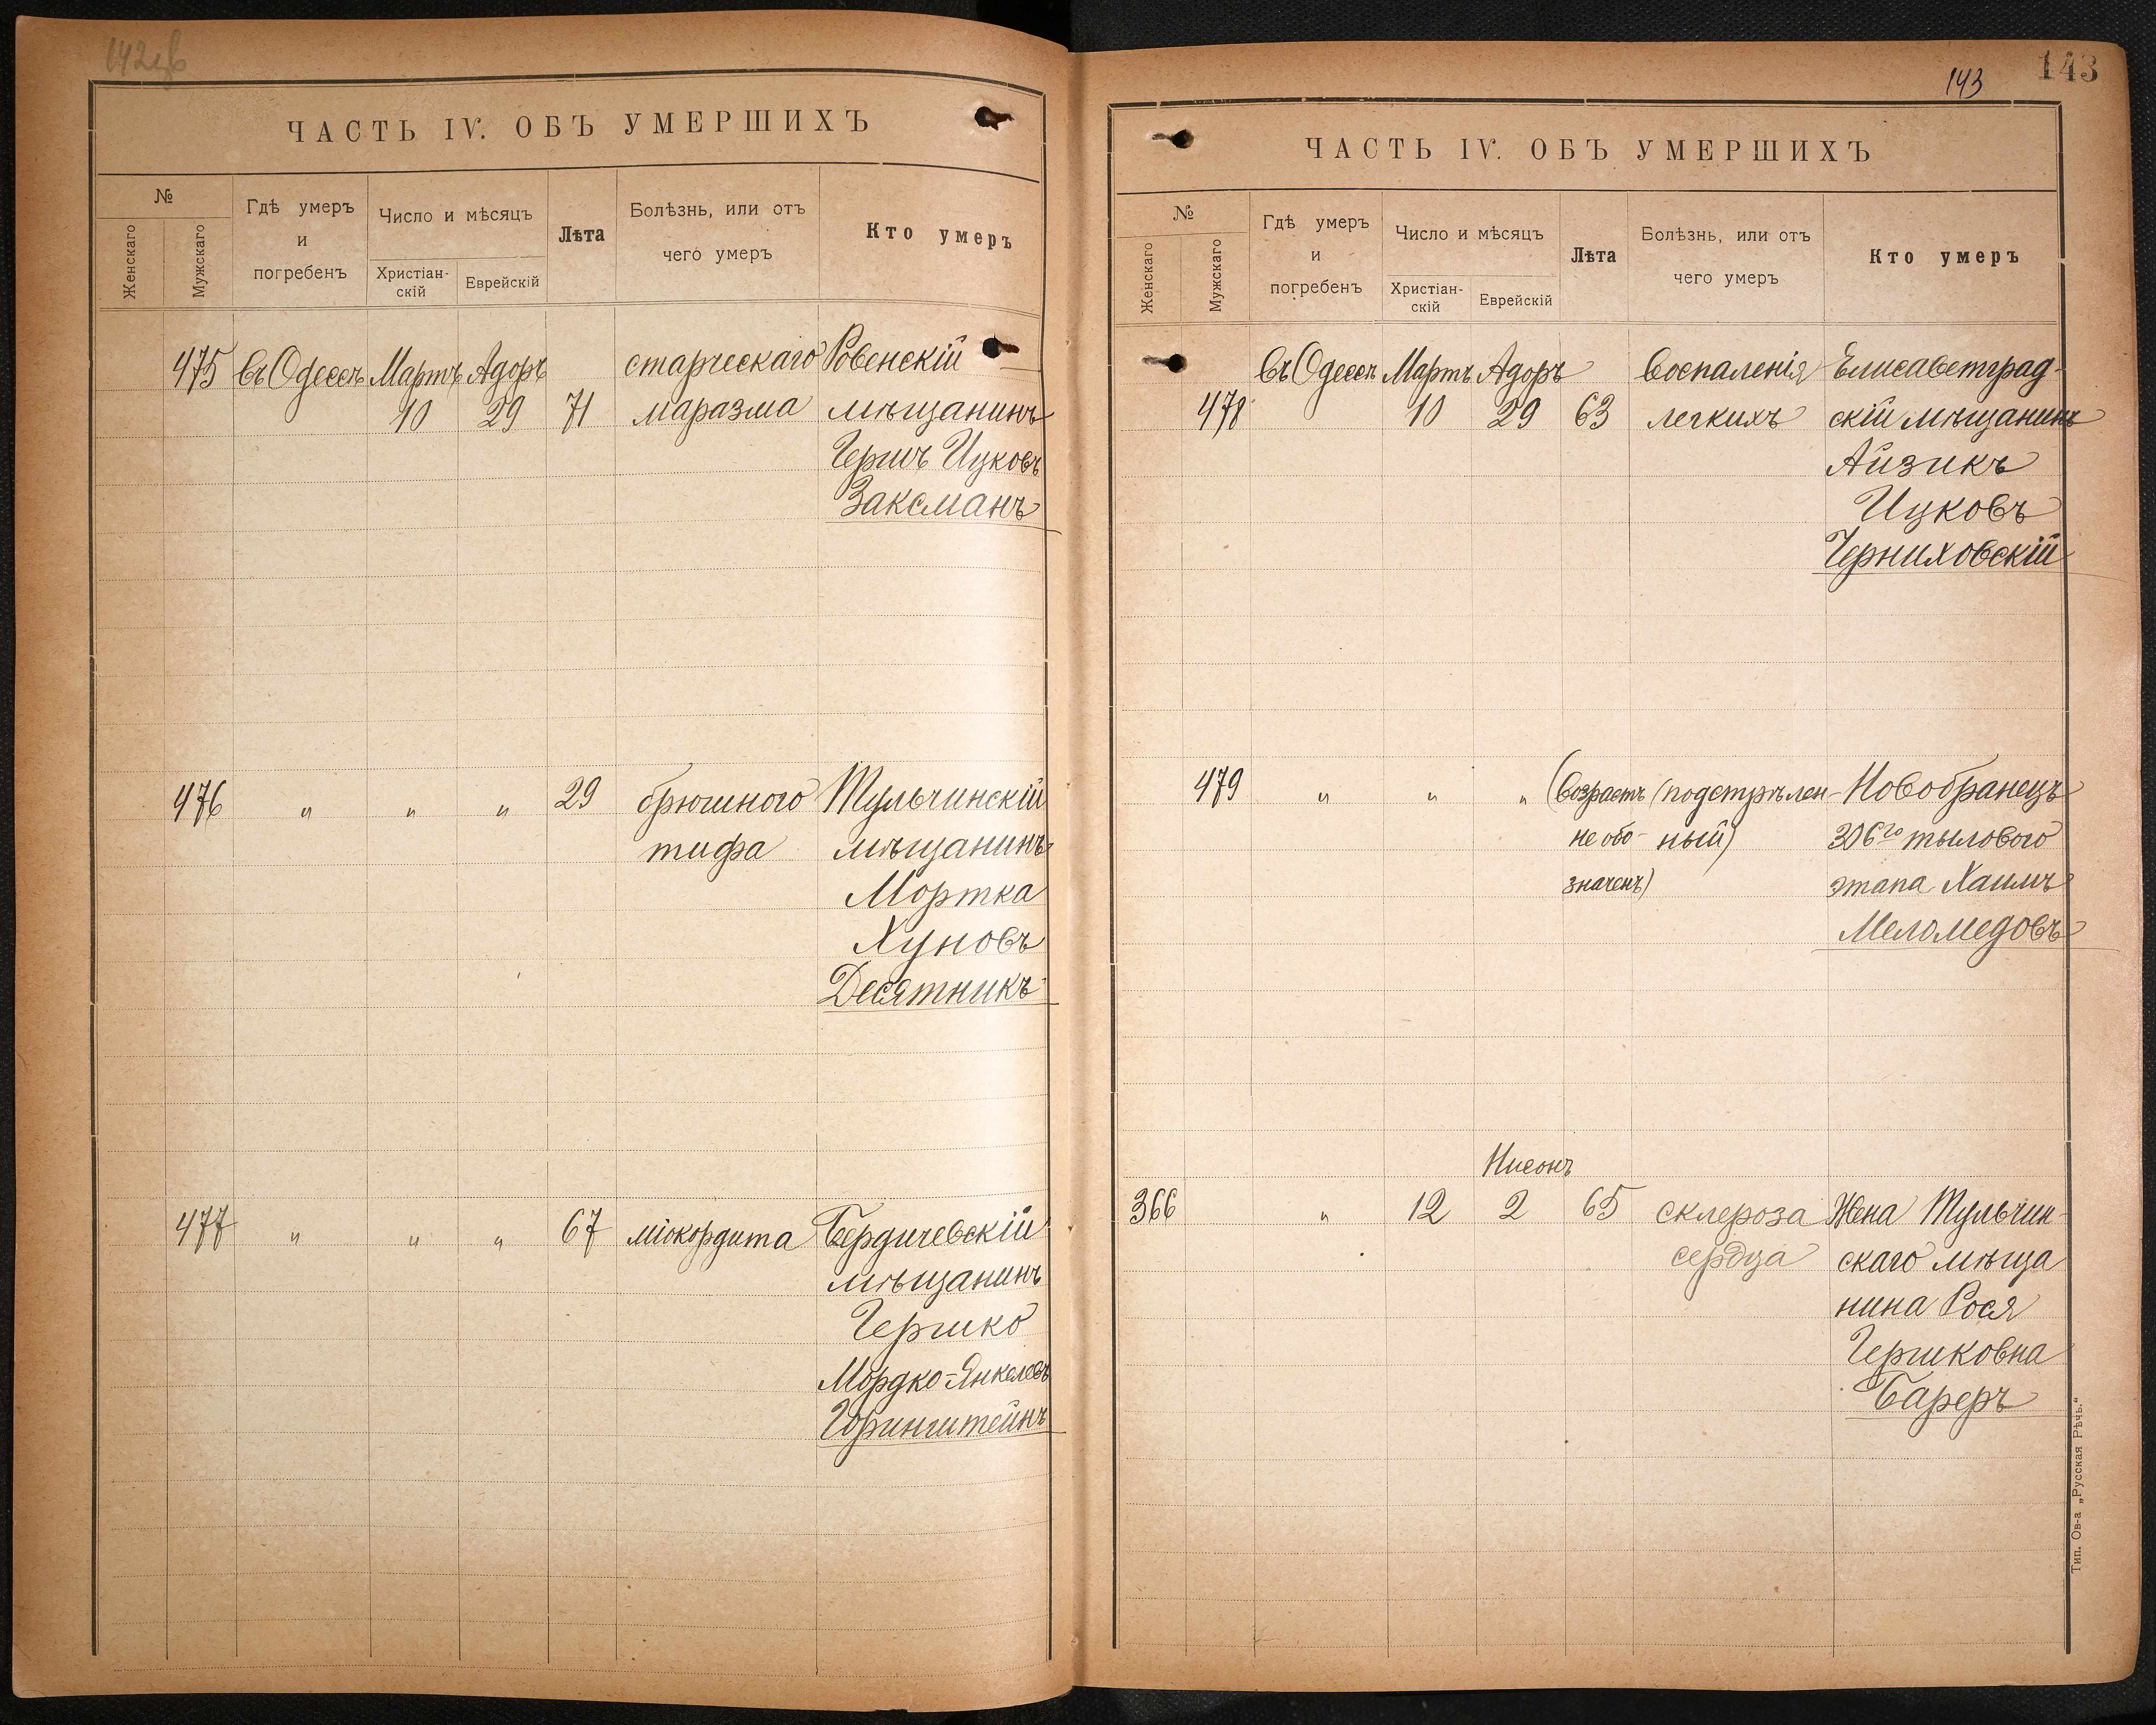 142об
ЧАСТЬ IV. ОБЪ УМЕРШИХЪ
№
Женскаго
Мужскаго
Гдѣ умеръ
и
погребенъ
Число и мѣсяцъ
Христіан-
скій
Еврейскій
Лѣта
Болѣзнь, или отъ
чего умеръ
Кто умеръ
475 въ Одессѣ Мартъ Адоръ старческаго Ровенскій
10 29 71 маразма мѣщанинъ
Гершъ Ицковъ
Заксманъ
476 " " " 29 брюшного Тульчинскій
тифа мѣщанинъ
Мортка
Хуновъ
Десятникъ
477 " " " 67 міокордита Бердичевскій
мѣщанинъ
Гершко
Мордко-Янкелевъ
Горинштейнъ
143
143
ЧАСТЬ IV. ОБЪ УМЕРШИХЪ
№
Женскаго
Мужскаго
Гдѣ умеръ
и
погребенъ
Число и мѣсяцъ
Христіан-
скій
Еврейскій
Лѣта
Болѣзнь, или отъ
чего умеръ
Кто умеръ
въ Одессѣ Мартъ Адоръ воспаленія Елисаветград-
478 10 29 63 легкихъ скій мѣщанинъ
Айзикъ
Ицковъ
Черниховскій
479 " " " (возрастъ (подстрѣлен- Новобранецъ
не обо- ный) 306го тылового
значенъ) этапа Хаимъ
Меломедовъ
Нисонъ
366 " 12 2 65 склероза Жена Тульчин-
сердца скаго мѣща
нина Рося
Гершковна
Бареръ
Тип. Ов-а „Русская Рѣчь.“